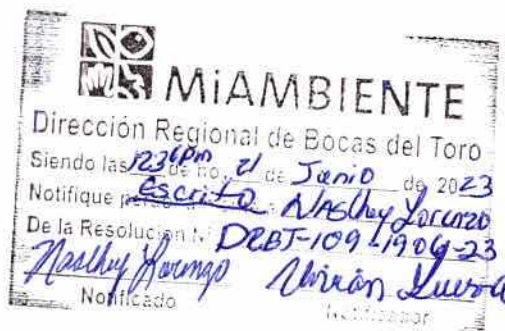 MiAMBIENTE
Dirección Regional de Bocas del Toro
Siendo las 1236pm de 21 de Junio de 2023
Notifique Escrito a Naslhey Lorenzo
De la Resolución N° DRBT-109-1906-23
Naslhey Lorenzo
Notificado Notificador